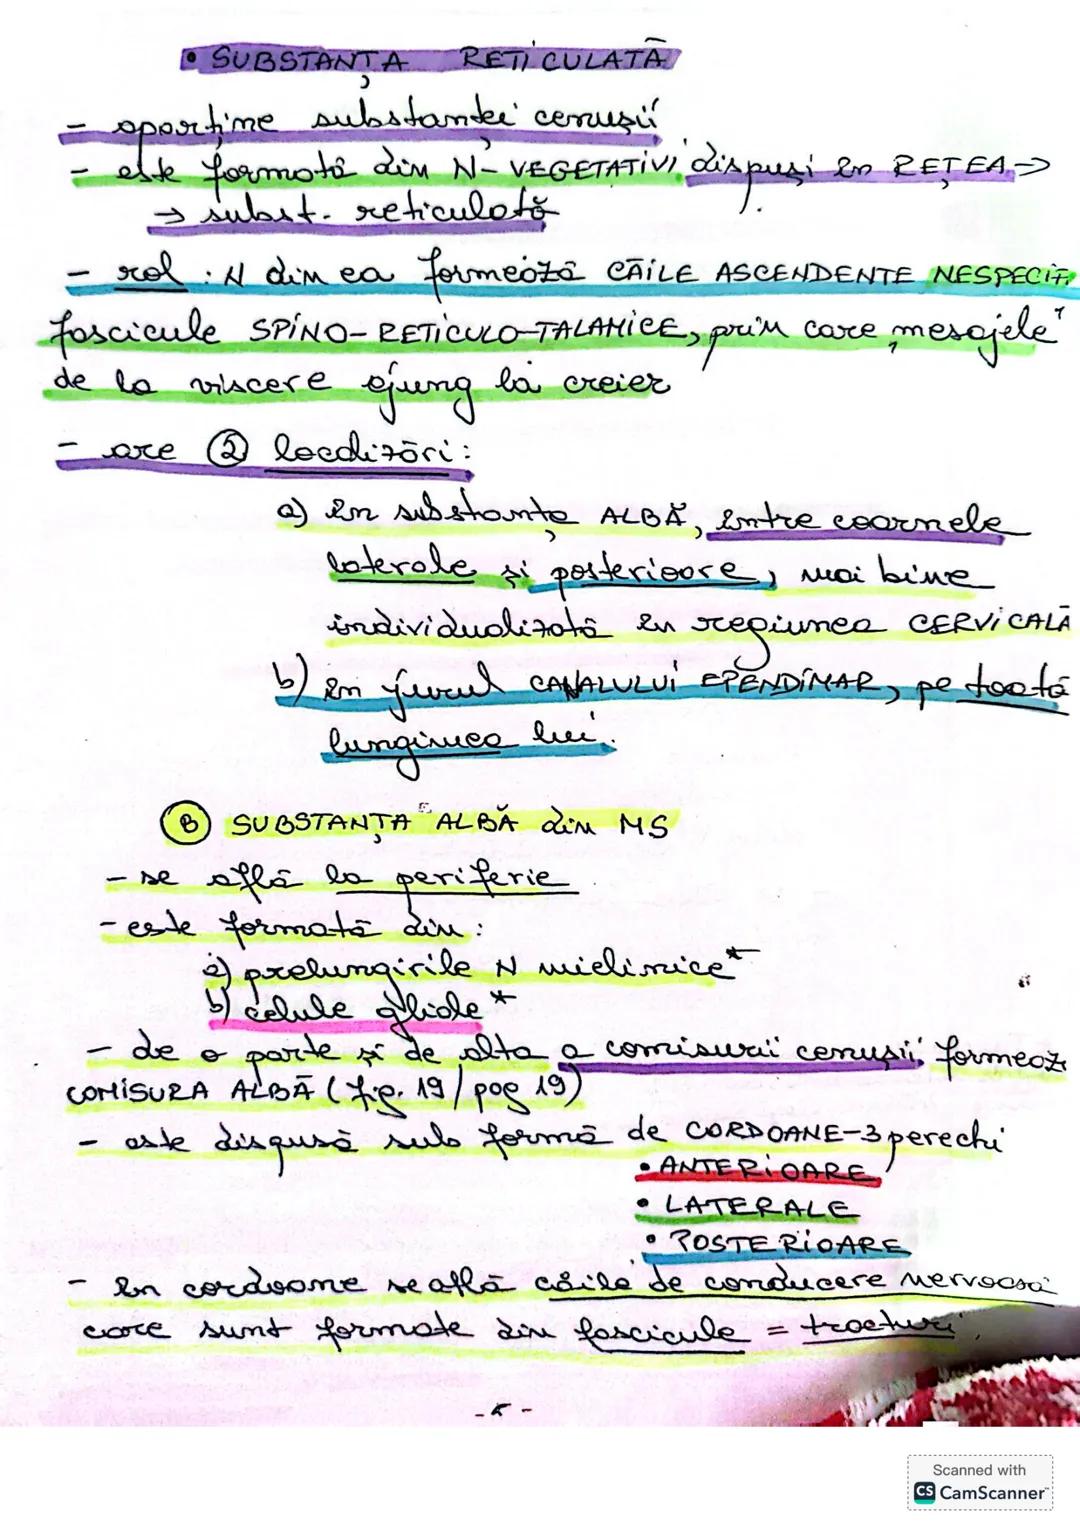 • SUBSTANȚA RETICULATĂ
- aparține substanței cenușii
- este formată din N-VEGETATIVI dispuși în REȚEA →
→ subst. reticulată
- rol: N din ea formează CĂILE ASCENDENTE NESPECIF.
fascicule SPINO-RETICULO-TALAMICE, prin care mesajele
de la viscere ajung la creier
- are ② localizări:
a) în substanța ALBĂ, între coarnele
laterale și posterioare, mai bine
individualizată în regiunea CERVICALĂ
b) în jurul CANALULUI EPENDIMAR, pe toată
lungimea lui.
Ⓑ SUBSTANȚA ALBĂ din MS
- se află la periferie
- este formată din:
a) prelungirile N mielinice*
b) celule gliale*
- de o parte și de alta a comisurii cenușii formeaz
COMISURA ALBĂ (fig. 19/pag 19)
- este dispusă sub formă de CORDOANE-3 perechi
• ANTERIOARE
• LATERALE
• POSTERIOARE
- în cordoane se află căile de conducere nervoasă
care sunt formate din fascicule = tracturi.
Scanned with
CS CamScanner